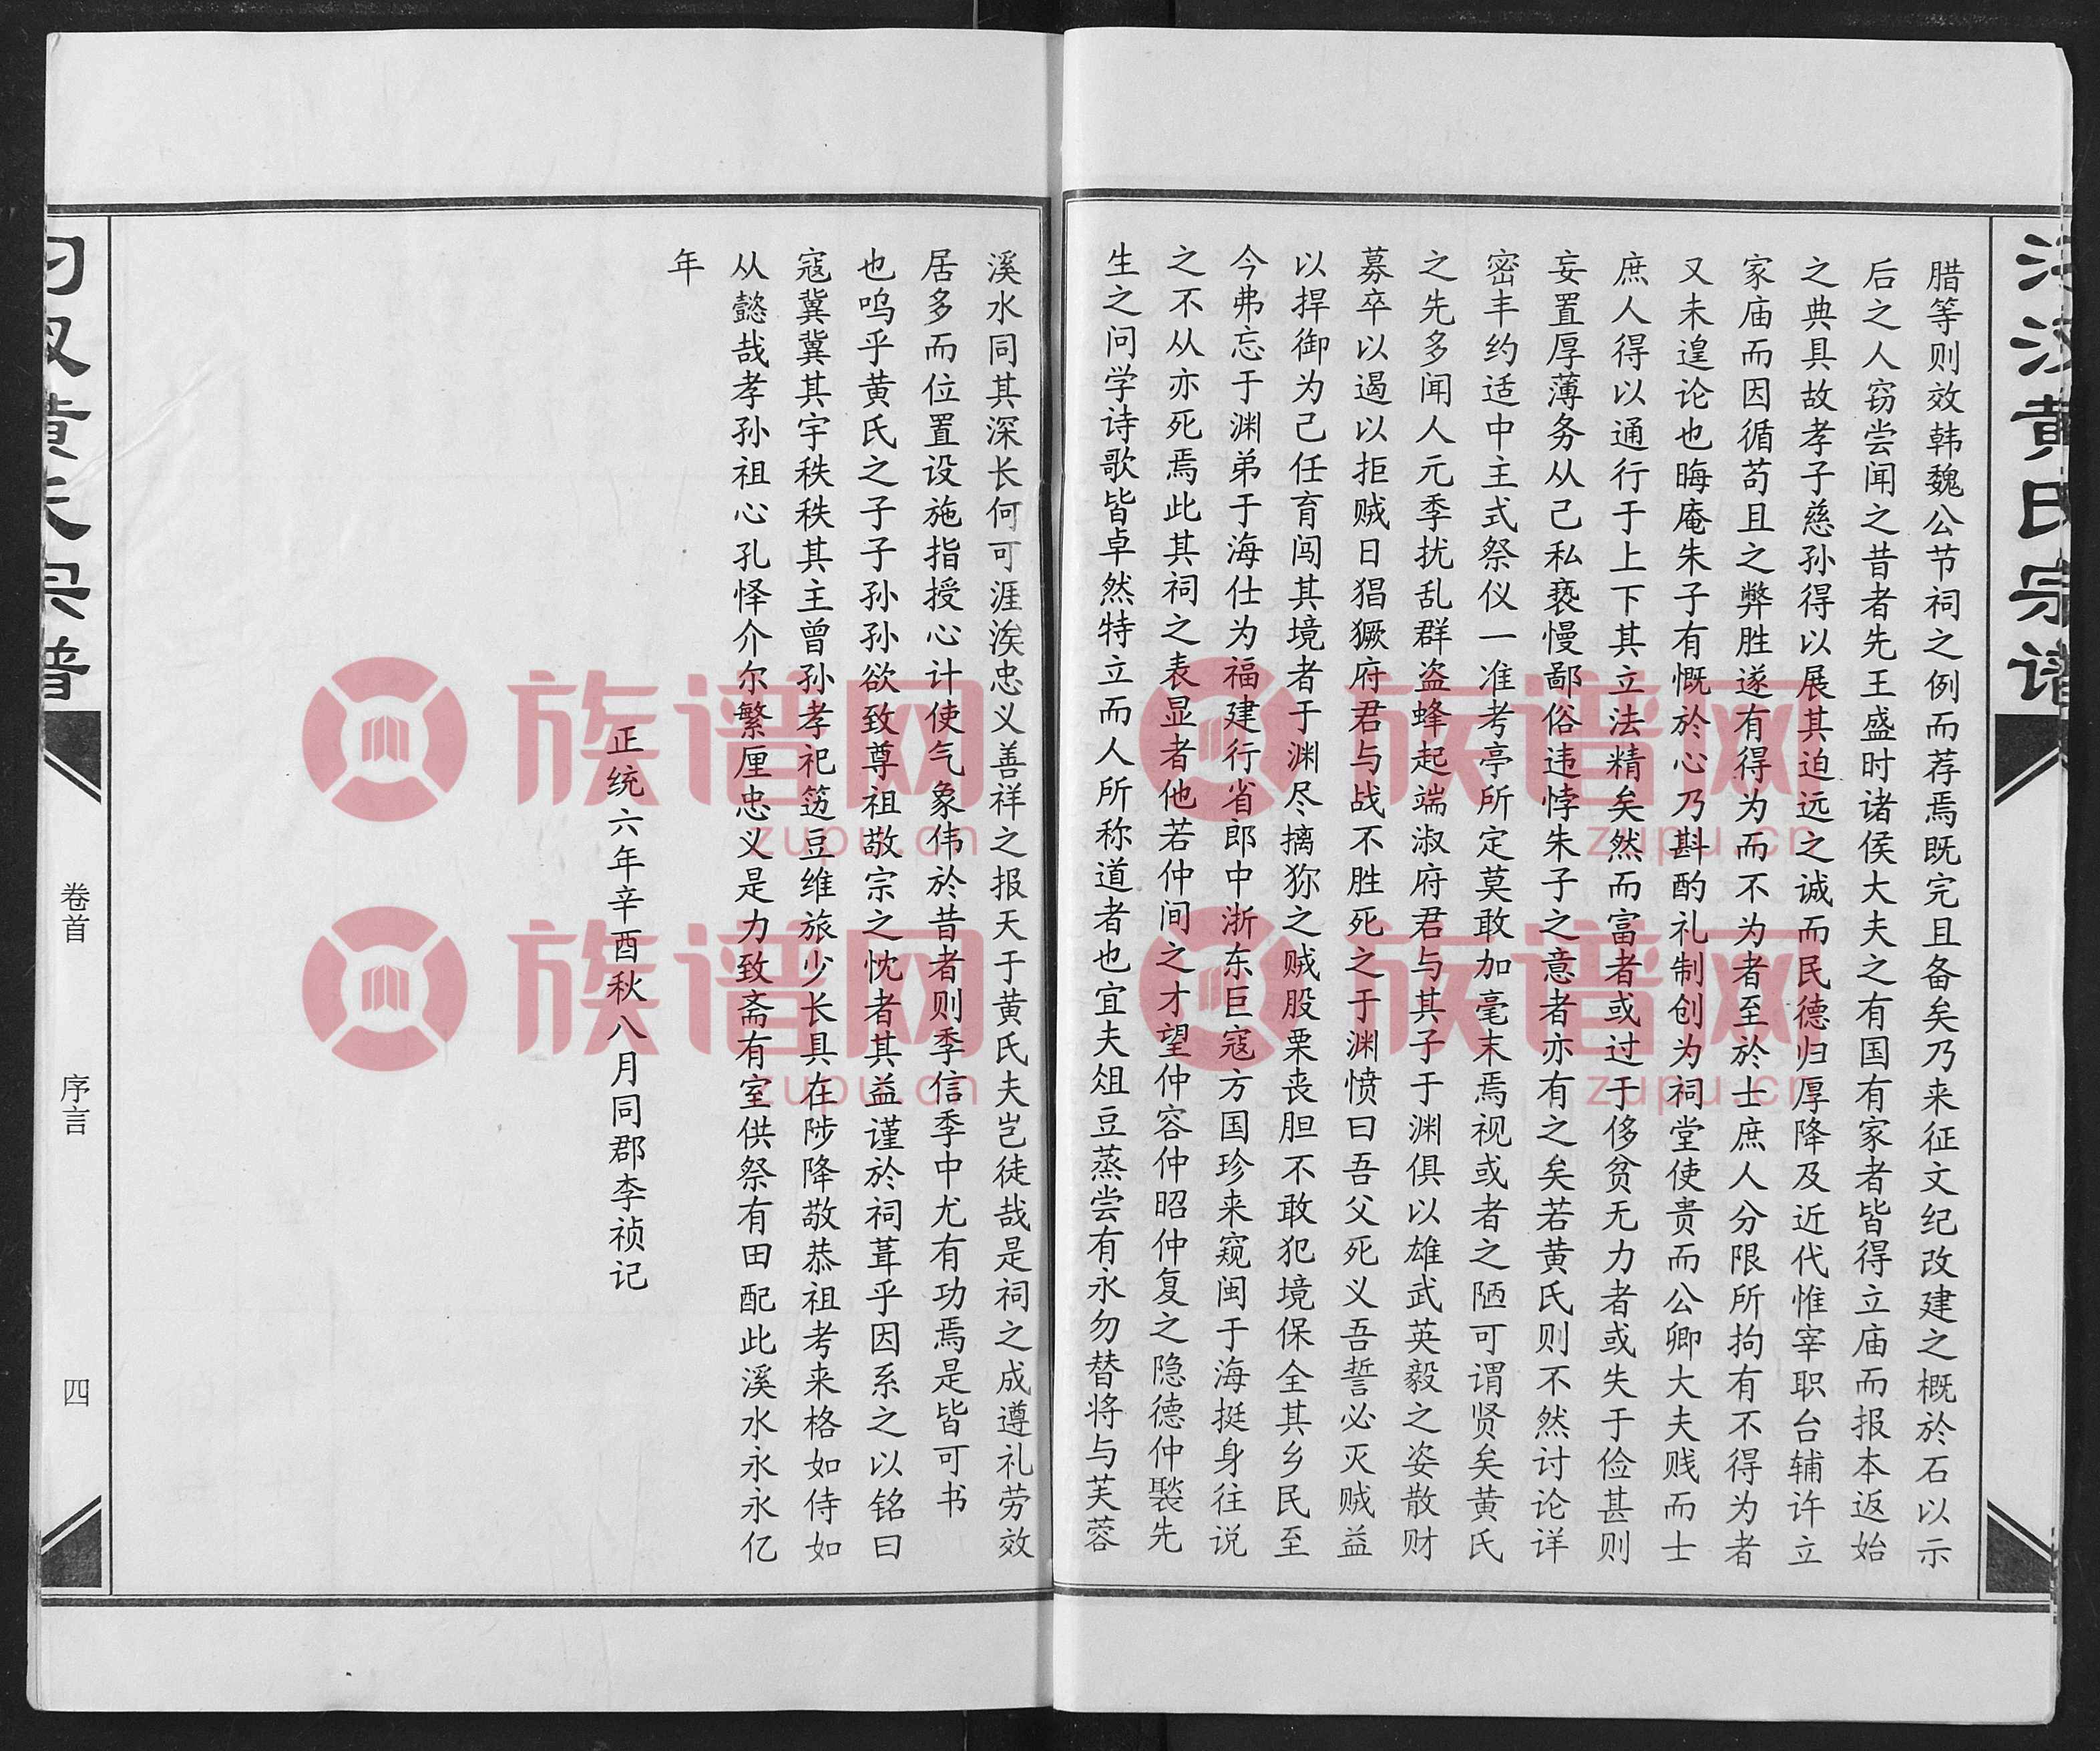 腊等则效韩魏公节祠之例而荐焉既完且备矣乃来征文纪改建之概於石以示
后之人窃尝闻之昔者先王盛时诸侯大夫之有国有家者皆得立庙而报本返始
之典具故孝子慈孙得以展其迫远之诚而民德归厚降及近代惟宰职台辅许立
家庙而因循苟且之弊胜遂有得为而不为者至於士庶人分限所拘有不得为者
又未遑论也晦庵朱子有慨於心乃斟酌礼制创为祠堂使贵而公卿大夫贱而士
庶人得以通行于上下其立法精矣然而富者或过于侈贫无力者或失于俭甚则
妄置厚薄务从己私亵慢鄙俗违悖朱子之意者亦有之矣若黄氏则不然讨论详
密丰约适中主式祭仪一准考亭所定莫敢加毫末焉视或者之陋可谓贤矣黄氏
之先多闻人元季扰乱群盗蜂起端淑府君与其子于渊俱以雄武英毅之姿散财
募卒以遏以拒贼日猖獗府君与战不胜死之于渊愤曰吾父死义吾誓必灭贼益
以捍御为己任育闯其境者于渊尽摛狝之贼股栗丧胆不敢犯境保全其乡民至
今弗忘于渊弟于海仕为福建行省郎中浙东巨寇方国珍来窥闽于海挺身往说
之不从亦死焉此其祠之表显者他若仲间之才望仲容仲昭仲复之隐德仲褧先
生之问学诗歌皆卓然特立而人所称道者也宜夫俎豆蒸尝有永勿替将与芙蓉
溪水同其深长何可涯涘忠义善祥之报天于黄氏夫岂徒哉是祠之成遵礼劳效
居多而位置设施指授心计使气象伟於昔者则季信季中尤有功焉是皆可书
也呜乎黄氏之子子孙孙欲致尊祖敬宗之忱者其益谨於祠葺乎因系之以铭曰
寇冀冀其宇秩秩其主曾孙孝祀笾豆维旅少长具在陟降敬恭祖考来格如侍如
从懿哉孝孙祖心孔怿介尔繁厘忠义是力致斋有室供祭有田配此溪水永永亿
年
正统六年辛酉秋八月同郡李祯记
黄氏宗谱
卷首
序言
四
族谱网
zupu.cn
族谱网
zupu.cn
族谱网
zupu.cn
族谱网
zupu.cn